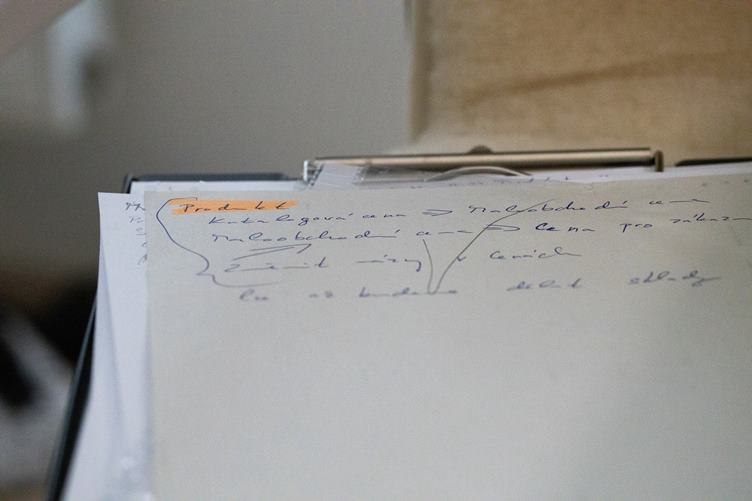 Produkt
Katalogová cena => Maloobchodní cena
Maloobchodní cena => Cena pro zákaz
Změnit názvy v cenách
až budeme dělat sklady